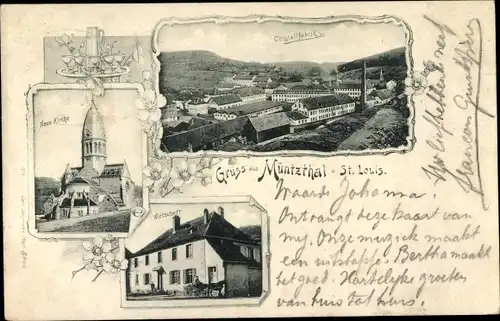 Crystallfabrik
Neue Kirche
Gruss aus Müntzthal - St. Louis.
Wirtschaft
Waarde Johanna!
Ontvangt deze kaart van
my. Onze muziek maakt
een uitstapje. Bertha maakt
het goed. Hartelijke groeten
van huis tot huis.
Uw liefhebbende neef